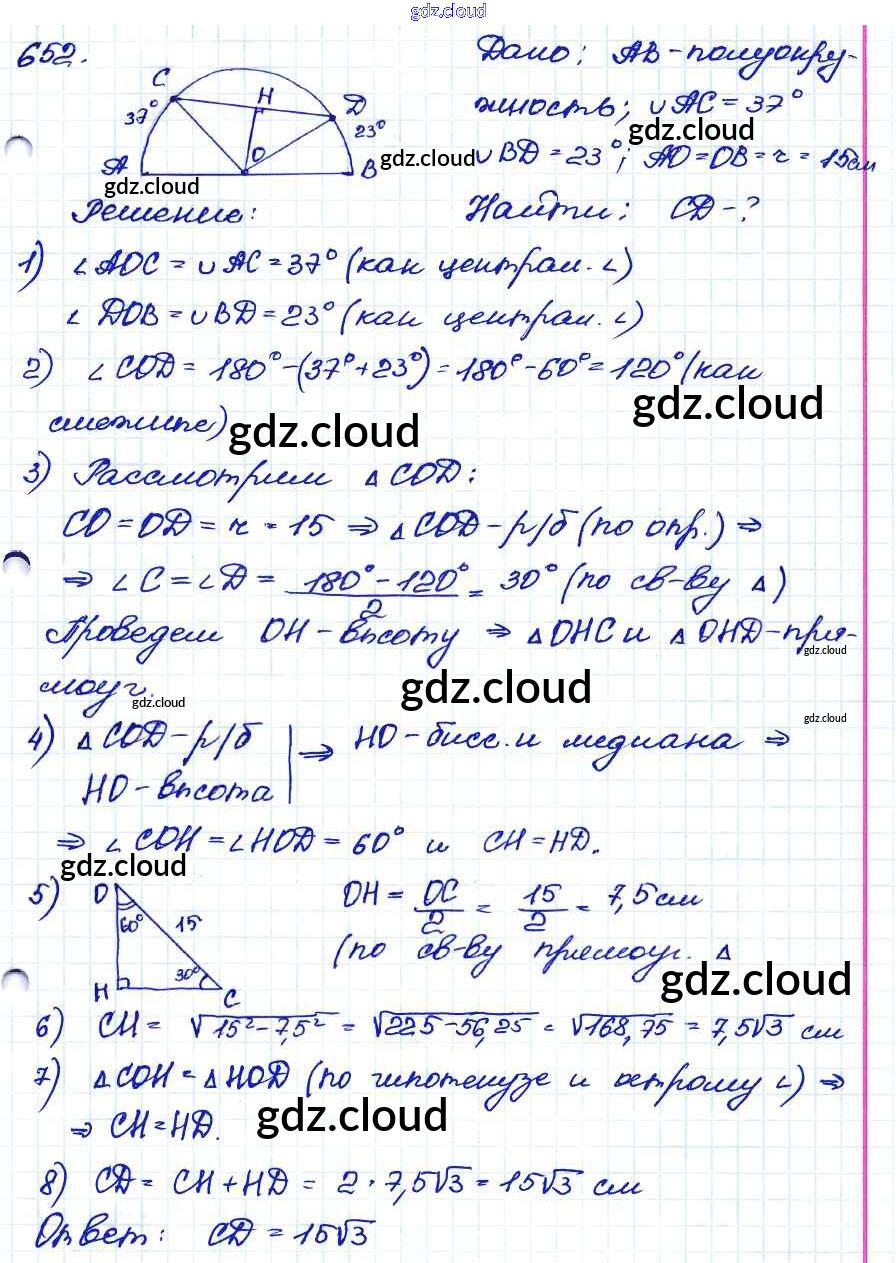 gdz.cloud
652.
Дано: AB-полуокру-
жность; ∪AC = 37°
gdz.cloud
∪BD = 23°; AO=OB=r=15см
Найти: CD-?
C
H
D
37°
23°
A
O
B
gdz.cloud
gdz.cloud
Решение:
1) ∠AOC = ∪AC = 37° (как централ. ∠)
∠DOB = ∪BD = 23° (как централ. ∠)
2) ∠COD = 180°-(37°+23°) = 180°-60° = 120° (как
gdz.cloud
смежные)
gdz.cloud
3) Рассмотрим △COD:
CO = OD = r = 15 ⇒ △COD-р/б (по опр.) ⇒
⇒ ∠C = ∠D = (180°-120°)/2 = 30° (по св-ву △)
Проведем OH-высоту ⇒ △OHC и △OHD-пря-
gdz.cloud
моуг.
gdz.cloud
gdz.cloud
gdz.cloud
4) △COD-р/б | ⇒ HO-бисс. и медиана ⇒
HO-высота
⇒ ∠COH = ∠HOD = 60° и CH = HD.
gdz.cloud
5) O
60°
15
30°
H
C
OH = OC/2 = 15/2 = 7,5 см
(по св-ву прямоуг. △
gdz.cloud
6) CH = √15²-7,5² = √225-56,25 = √168,75 = 7,5√3 см
7) △COH = △HOD (по гипотенузе и острому ∠) ⇒
⇒ CH = HD.
gdz.cloud
8) CD = CH + HD = 2·7,5√3 = 15√3 см
Ответ: CD = 15√3